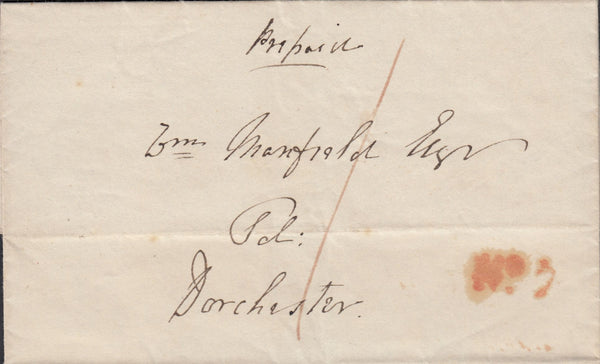 Prepaid
Wm Manfield Esqr
Pd:
Dorchester.
No 3